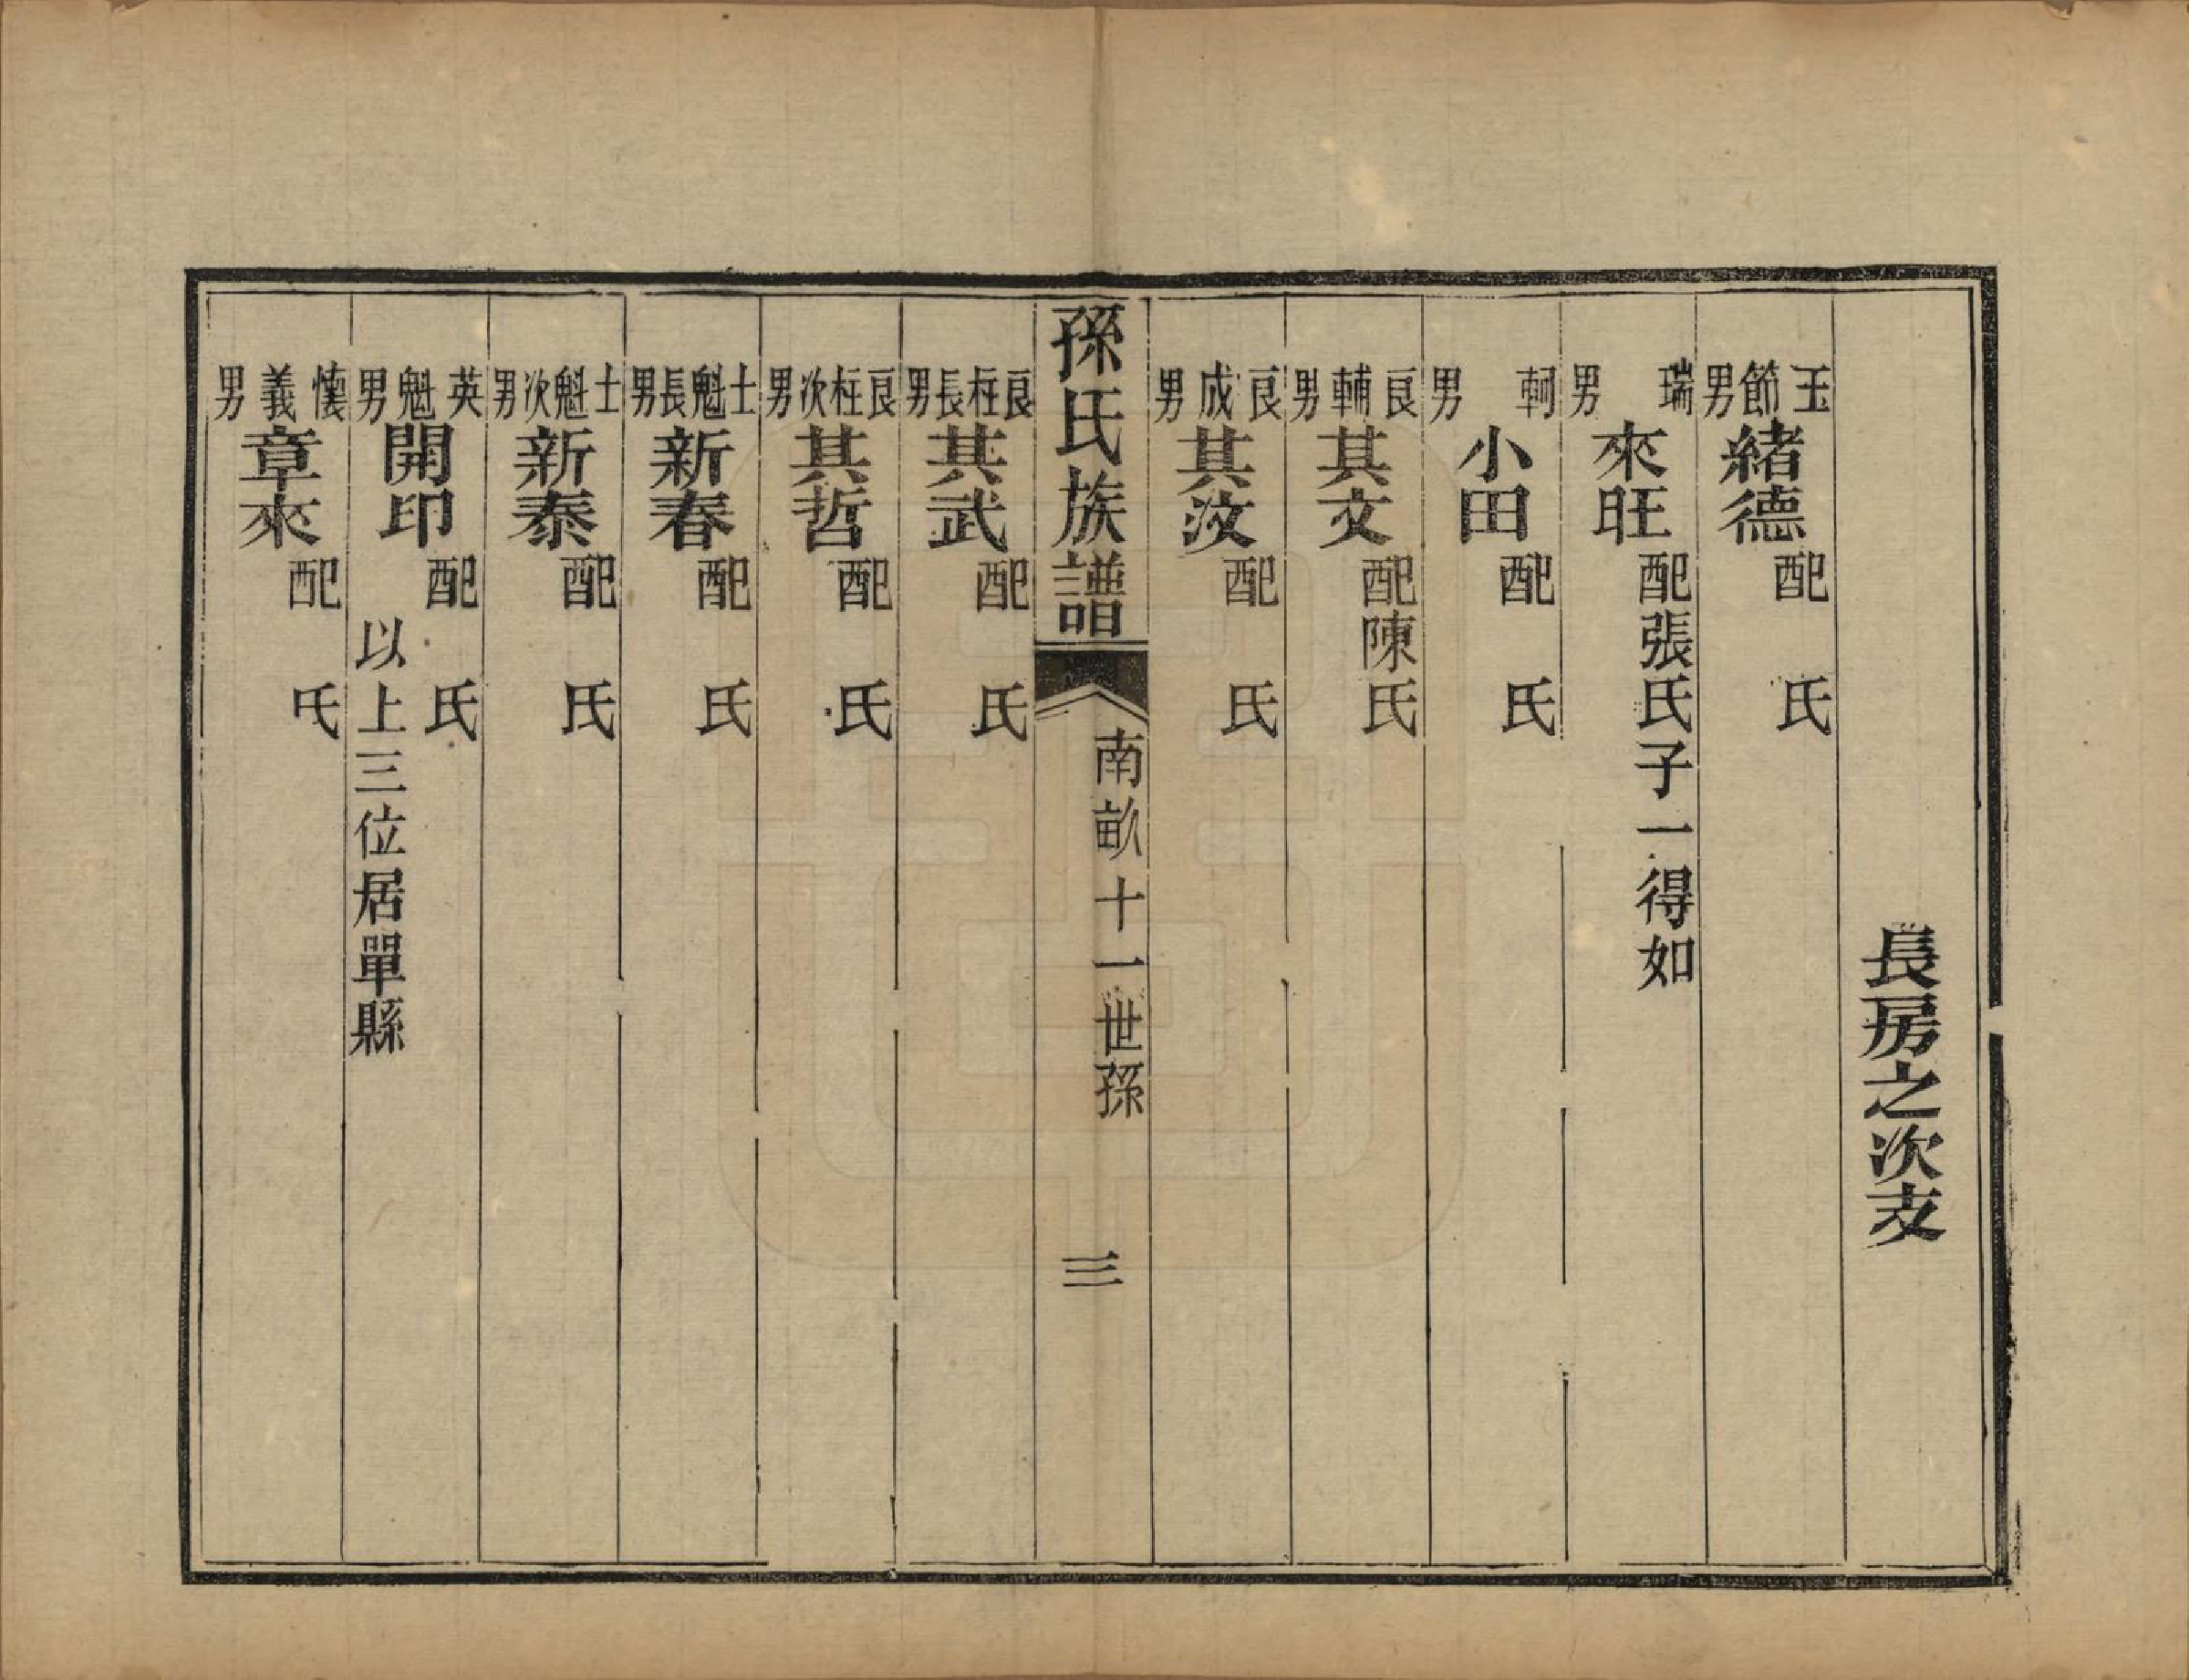 長房之次支
玉節男 緒德 配 氏
瑞男 來旺 配張氏子一得如
軻男 小田 配 氏
良輔男 其文 配陳氏
良成男 其汝 配 氏
孫氏族譜 南畝十一世孫 三
良柱長男 其武 配 氏
良柱次男 其哲 配 氏
士魁長男 新春 配 氏
士魁次男 新泰 配 氏
英魁男 開印 配 氏
以上三位居單縣
懷義男 章來 配 氏